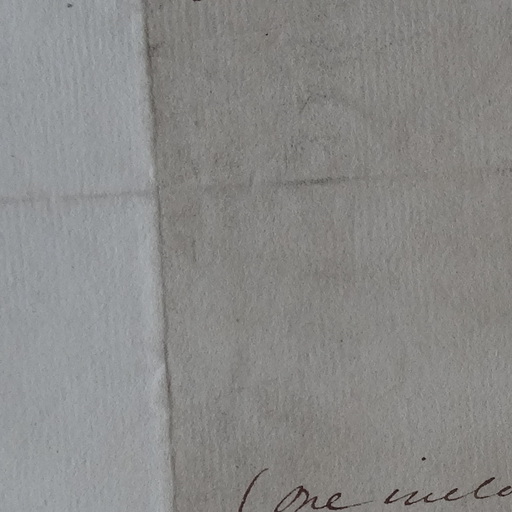 (One inclo